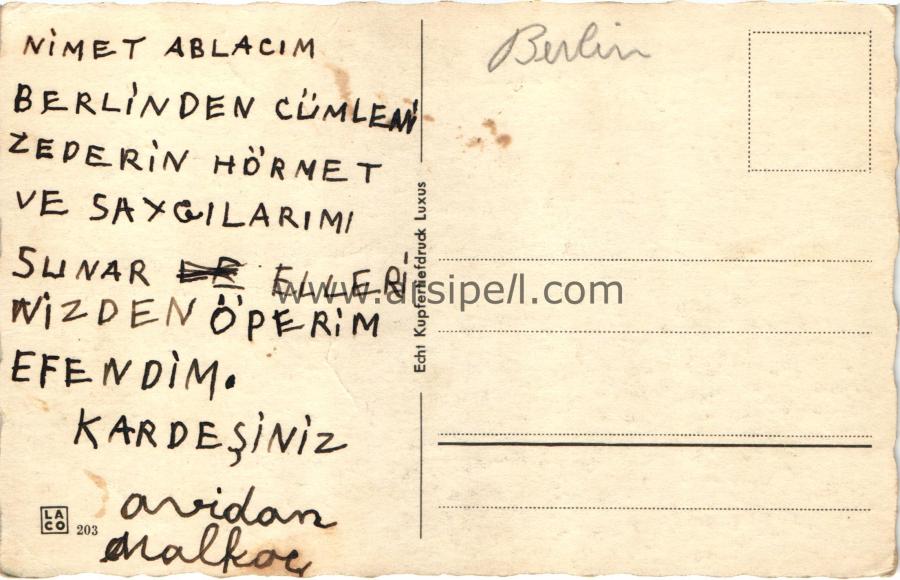 NİMET ABLACIM
BERLİNDEN CÜMLENİ
ZEDERİN HÖRMET
VE SAYGILARIMI
SUNAR ELLERİ
NİZDEN ÖPERİM
EFENDİM.
KARDEŞİNİZ
avidan
Malkoç
LA
CO
203
Echt Kupfertiefdruck Luxus
Berlin
www.arsipell.com